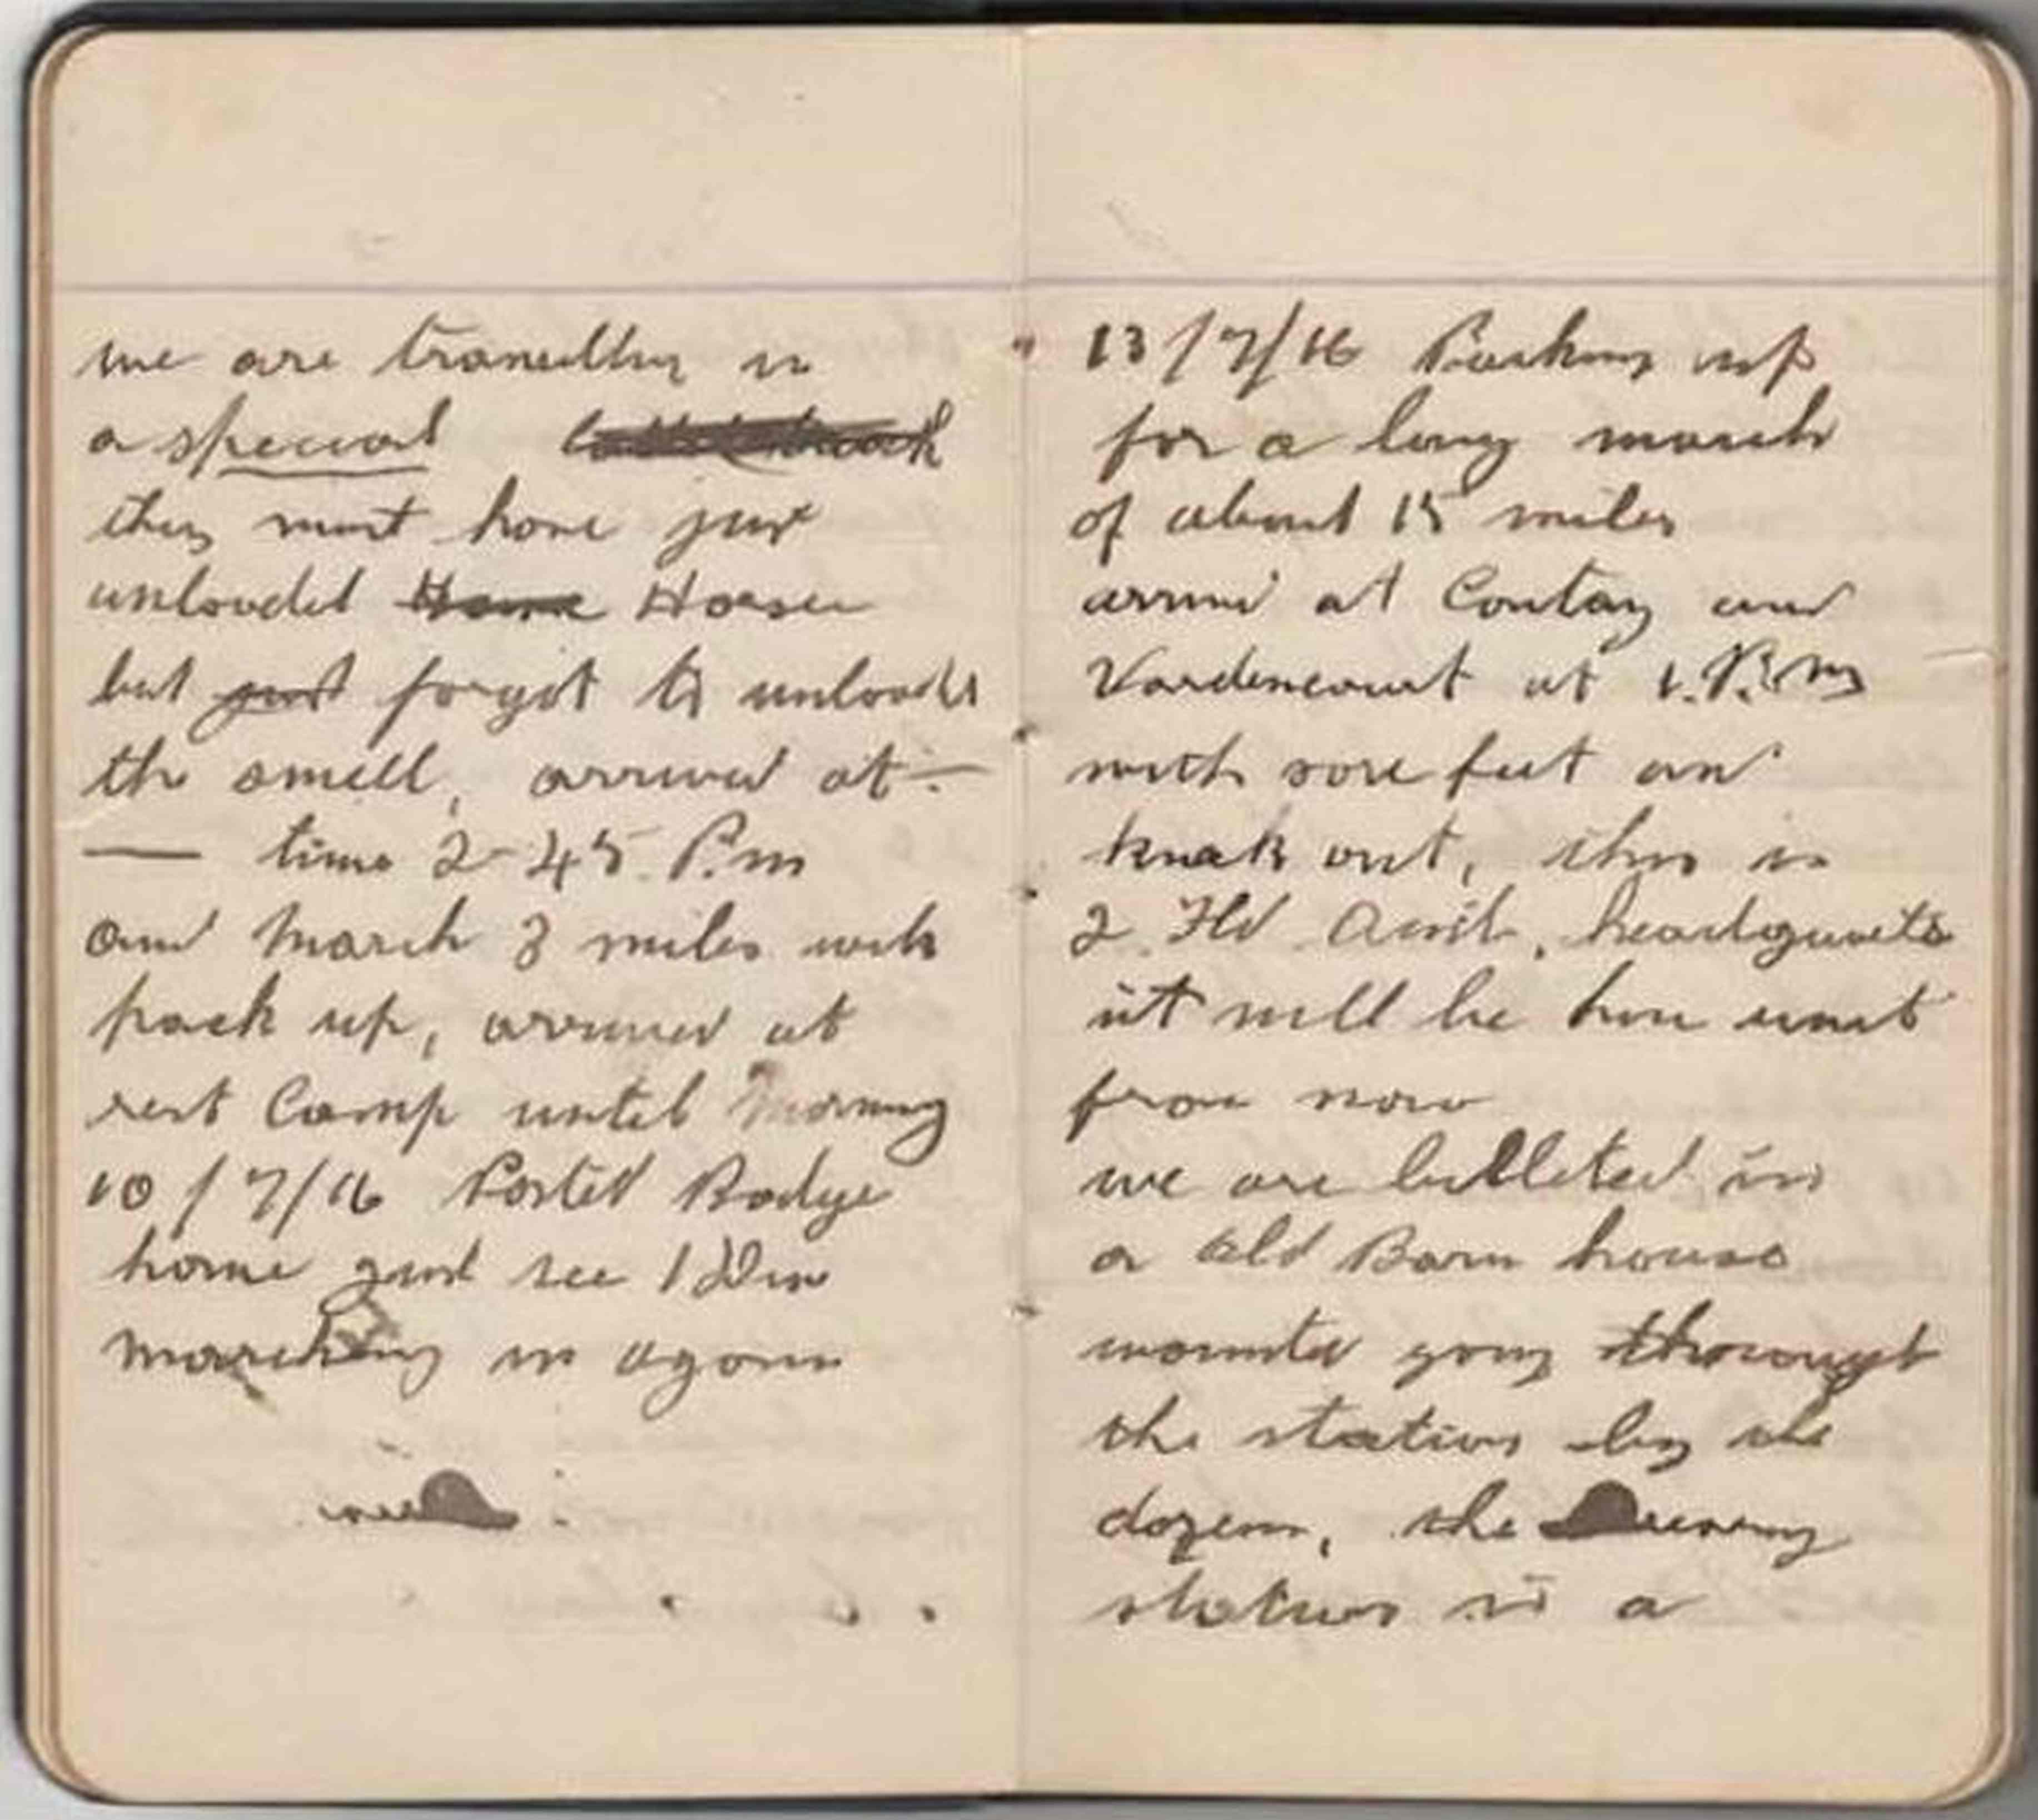 we are travelling in
a special
they must have just
unloaded Horses
but just forgot to unload
the smell, arrived at —
— time 2-45 P.m
and March 3 miles with
pack up, arrived at
rest Camp until morning
10/7/16 Posted Badge
home just see 1 Div
marching in again
13/7/16 Packing up
for a long march
of about 15 miles
arrived at Contay and
Vardencourt at 1.P.m
with sore feet an
knock out, this is
2 Fld Amb. headquarters
it will be hour unit
from now
we are billeted in
a old Barn house
wounded going through
the station by the
dozens, the
station is a